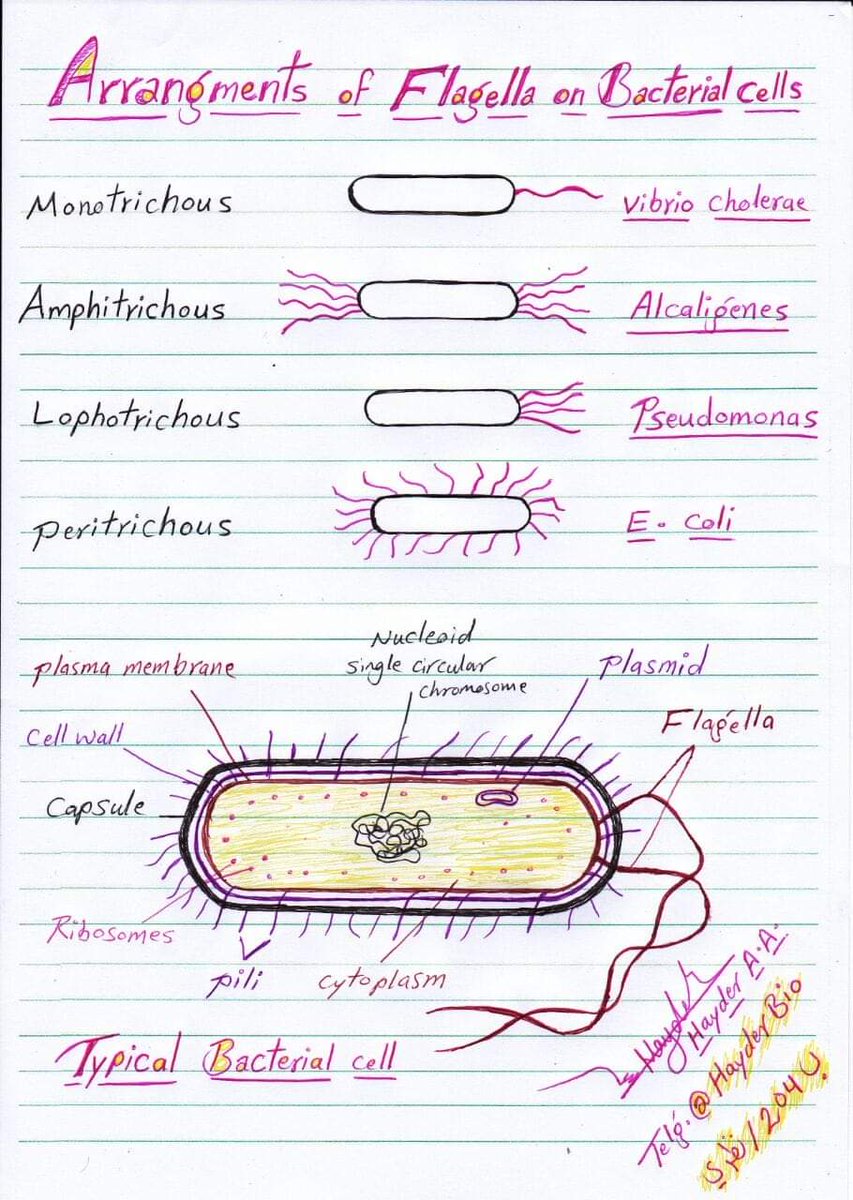 Arrangments of Flagella on Bacterial cells
Monotrichous
Vibrio cholerae
Amphitrichous
Alcaligenes
Lophotrichous
Pseudomonas
Peritrichous
E. coli
Nucleoid
single circular
chromosome
plasma membrane
Plasmid
Cell wall
Flagella
Capsule
Ribosomes
pili
cytoplasm
Typical Bacterial cell
Hayder
Hayder A.A.
Telg. @HayderBio